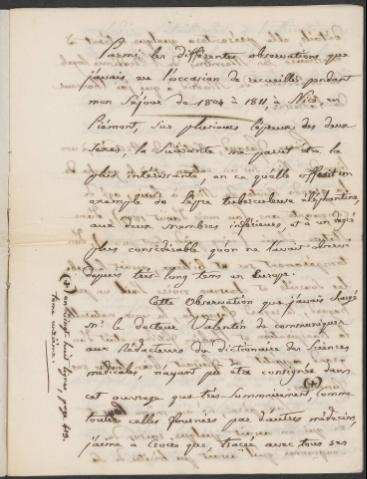 Parmi les différentes observations que
j'avais eu l'occasion de recueillir pendant
mon Séjour de 1804 à 1811, à Nice, en
Piémont, sur plusieurs Lépreux des deux
Sexes, la Suivante me parait etre la
plus intéressante, en ce qu'elle offroit un
exemple de Lèpre tuberculeuse éléphantine,
aux deux membres inférieurs, et à un degré
plus considérable qu'on ne l'avoit observé
depuis très-long tems en Europe.
Cette Observation que j'avais chargé
Mr. le docteur Valentin de communiquer
aux Rédacteurs du dictionaire des Sciences
médicales, n'ayant pu etre consignée dans
(+)
cet ouvrage que très-sommairement, comme
toutes celles fournies par d'autres médecins,
j'aime à croire que, tracée avec tous ses
(+) en vingt huit lignes, page
tome onzième.